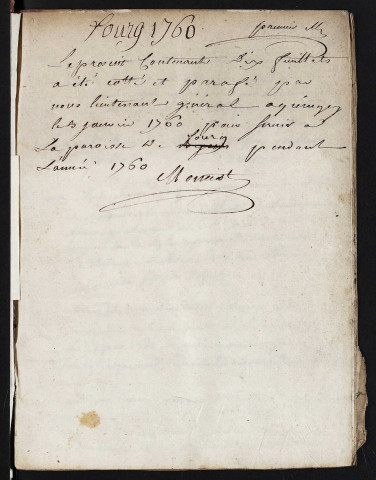 Fourg 1760
premier
Le present Contenant Dix feuillets
a été cotté et parafé par
nous lieutenant général a quingey
le 3 janvier 1760 pour servir a
La paroisse De fourg pendant
L'année 1760